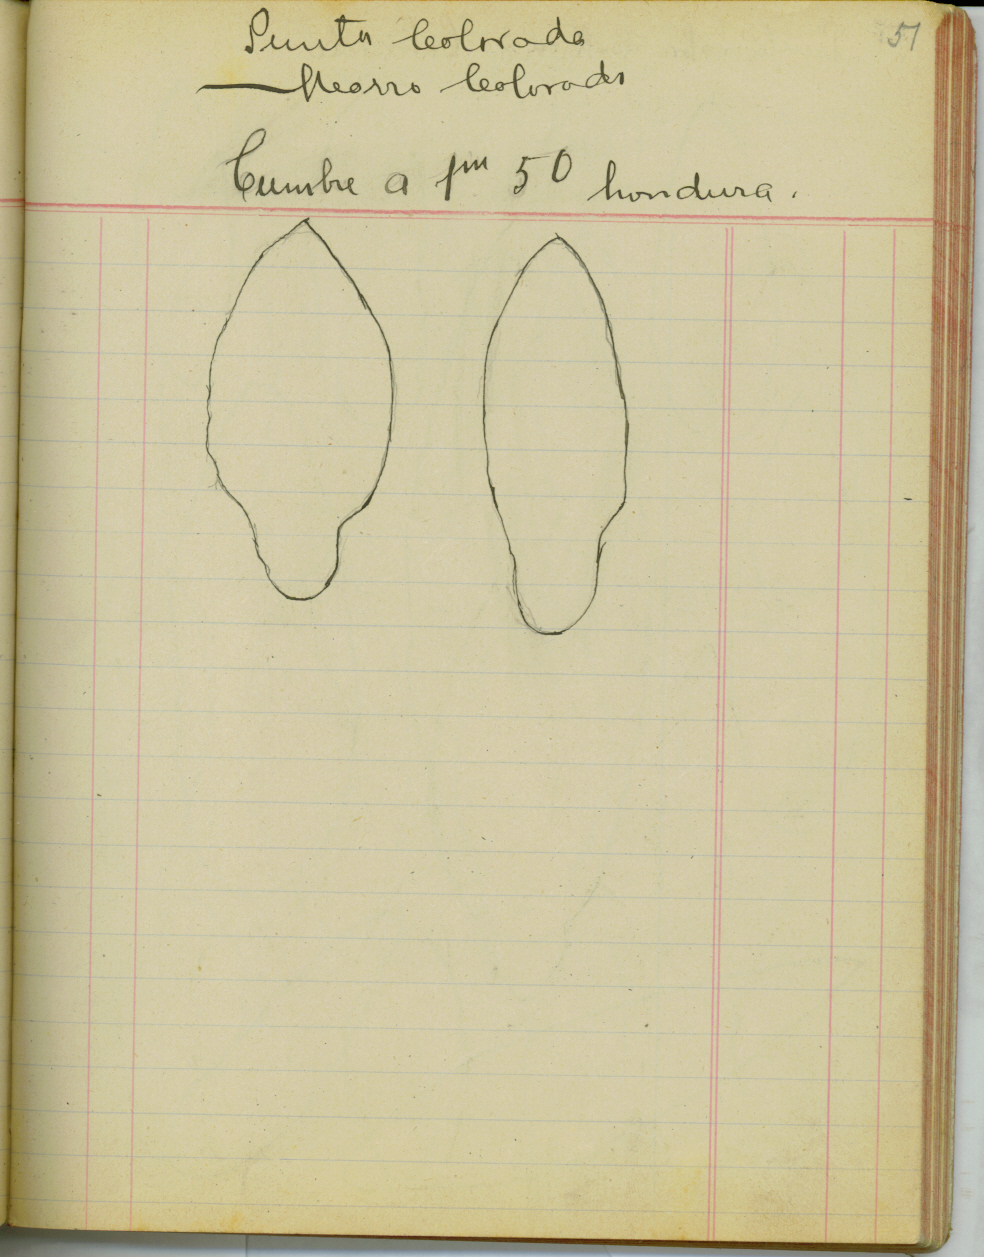 51
Punta Colorada
— Morro Colorado
Cumbre a 1m 50 hondura.